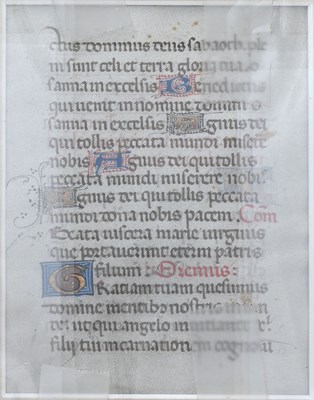 ctus dominus deus sabaoth ple
ni sunt celi et terra gloria tua o
sanna in excelsis Benedictus
qui uenit in nomine domini o
sanna in excelsis Agnus dei
qui tollis peccata mundi misere
nobis Agnus dei qui tollis
peccata mundi miserere nobis
Agnus dei qui tollis peccata
mundi dona nobis pacem. Com
Beata uiscera marie uirginis
que portauerunt eterni patris
filium Oremus:
Gratiam tuam quesumus
domine mentibus nostris in
de ut qui angelo nuntiante xp̄i
filii tui incarnationem cognoui